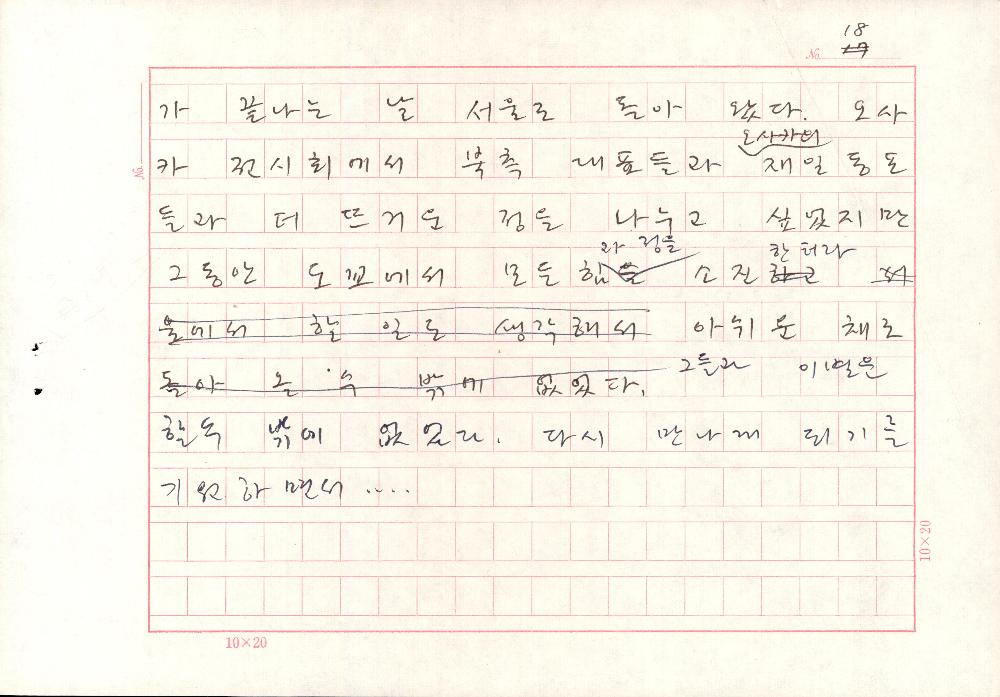 No. 17 18
가 끝나는 날 서울로 돌아 왔다. 오사
오사카의
카 전시회에서 북측 대표들과 재일 동포
들과 더 뜨거운 정을 나누고 싶었지만
와 정을 한 터라
그동안 도꾜에서 모든 힘을 소진하고 서
울에서 할 일도 생각해서 아쉬운 채로
돌아 올 수 밖에 없었다. 그들과 이별은
할 수 밖에 없었다. 다시 만나게 되기를
기원하면서 ....
No.
10×20
10×20